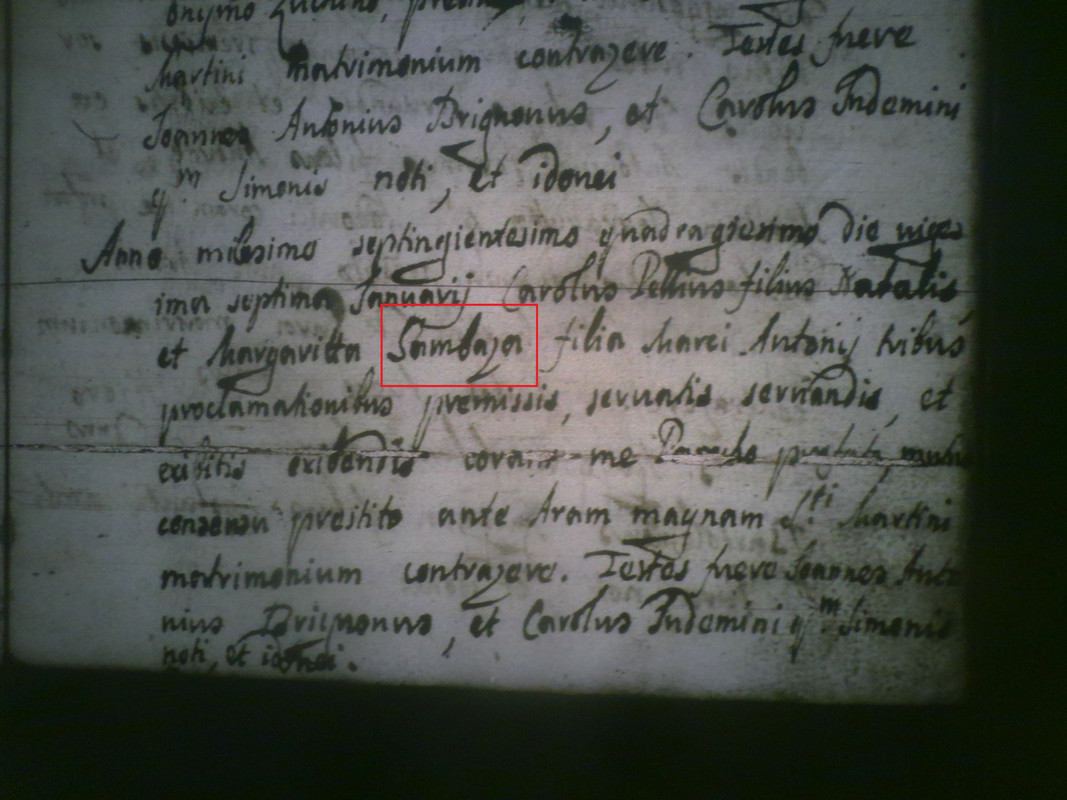 Martini matrimonium contraxere. Testes fuere
Joannes Antonius Brignonus, et Carolus Indemini
q.m Simonis noti, et idonei
Anno milesimo septingientesimo quadragiesimo die viges
ima septima Januarij Carolus Pellius filius Natalis
et Margaritta Sambaza filia Marci Antonij tribus
proclamationibus premissis, servatis servandis, et
exibitis exibendis coram me mutu
consensu prestito ante Aram magnam S.ti Martini
matrimonium contraxere. Testes fuere Joannes Anto
nius Brignonus, et Carolus Indemini q.m Simonis
noti, et idonei.